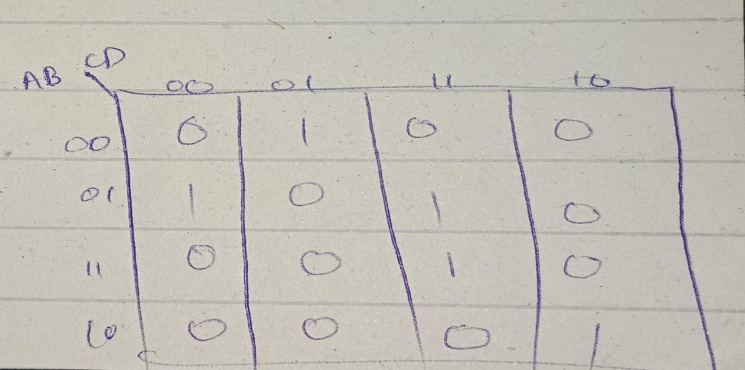 CD
AB 00 01 11 10
00 0 1 0 0
01 1 0 1 0
11 0 0 1 0
10 0 0 0 1